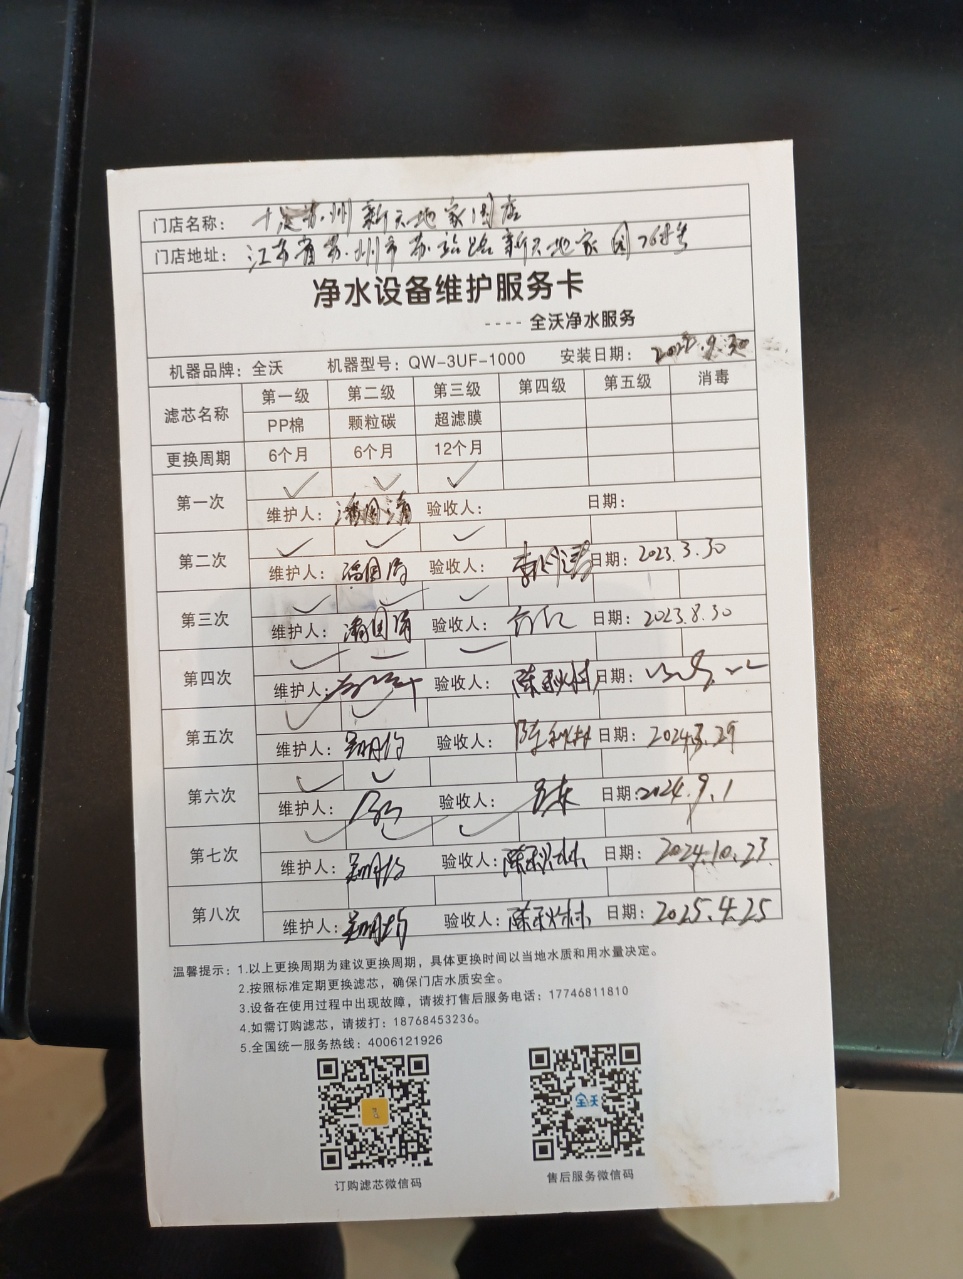 门店名称： 苏州新天地家园店
门店地址： 江苏省苏州市苏站路新天地家园
净水设备维护服务卡
---- 全沃净水服务
机器品牌：全沃 机器型号：QW-3UF-1000 安装日期：2022.9.30
滤芯名称 第一级 第二级 第三级 第四级 第五级 消毒
PP棉 颗粒碳 超滤膜
更换周期 6个月 6个月 12个月
第一次 ✓ ✓ ✓
维护人： 验收人： 日期：
第二次 ✓ ✓ ✓
维护人： 验收人： 日期：2023.3.30
第三次 ✓ ✓ ✓
维护人： 验收人： 日期：2023.8.30
第四次 ✓ ✓
维护人： 验收人：陈秋林 日期：
第五次 ✓ ✓
维护人： 验收人：陈秋林 日期：2024.3.29
第六次 ✓ ✓
维护人： 验收人： 日期：2024.9.1
第七次 ✓ ✓ ✓
维护人： 验收人：陈秋林 日期：2024.10.23
第八次
维护人： 验收人：陈秋林 日期：2025.4.25
温馨提示：1.以上更换周期为建议更换周期，具体更换时间以当地水质和用水量决定。
2.按照标准定期更换滤芯，确保门店水质安全。
3.设备在使用过程中出现故障，请拨打售后服务电话：17746811810
4.如需订购滤芯，请拨打：18768453236。
5.全国统一服务热线：4006121926
全沃
订购滤芯微信码 售后服务微信码